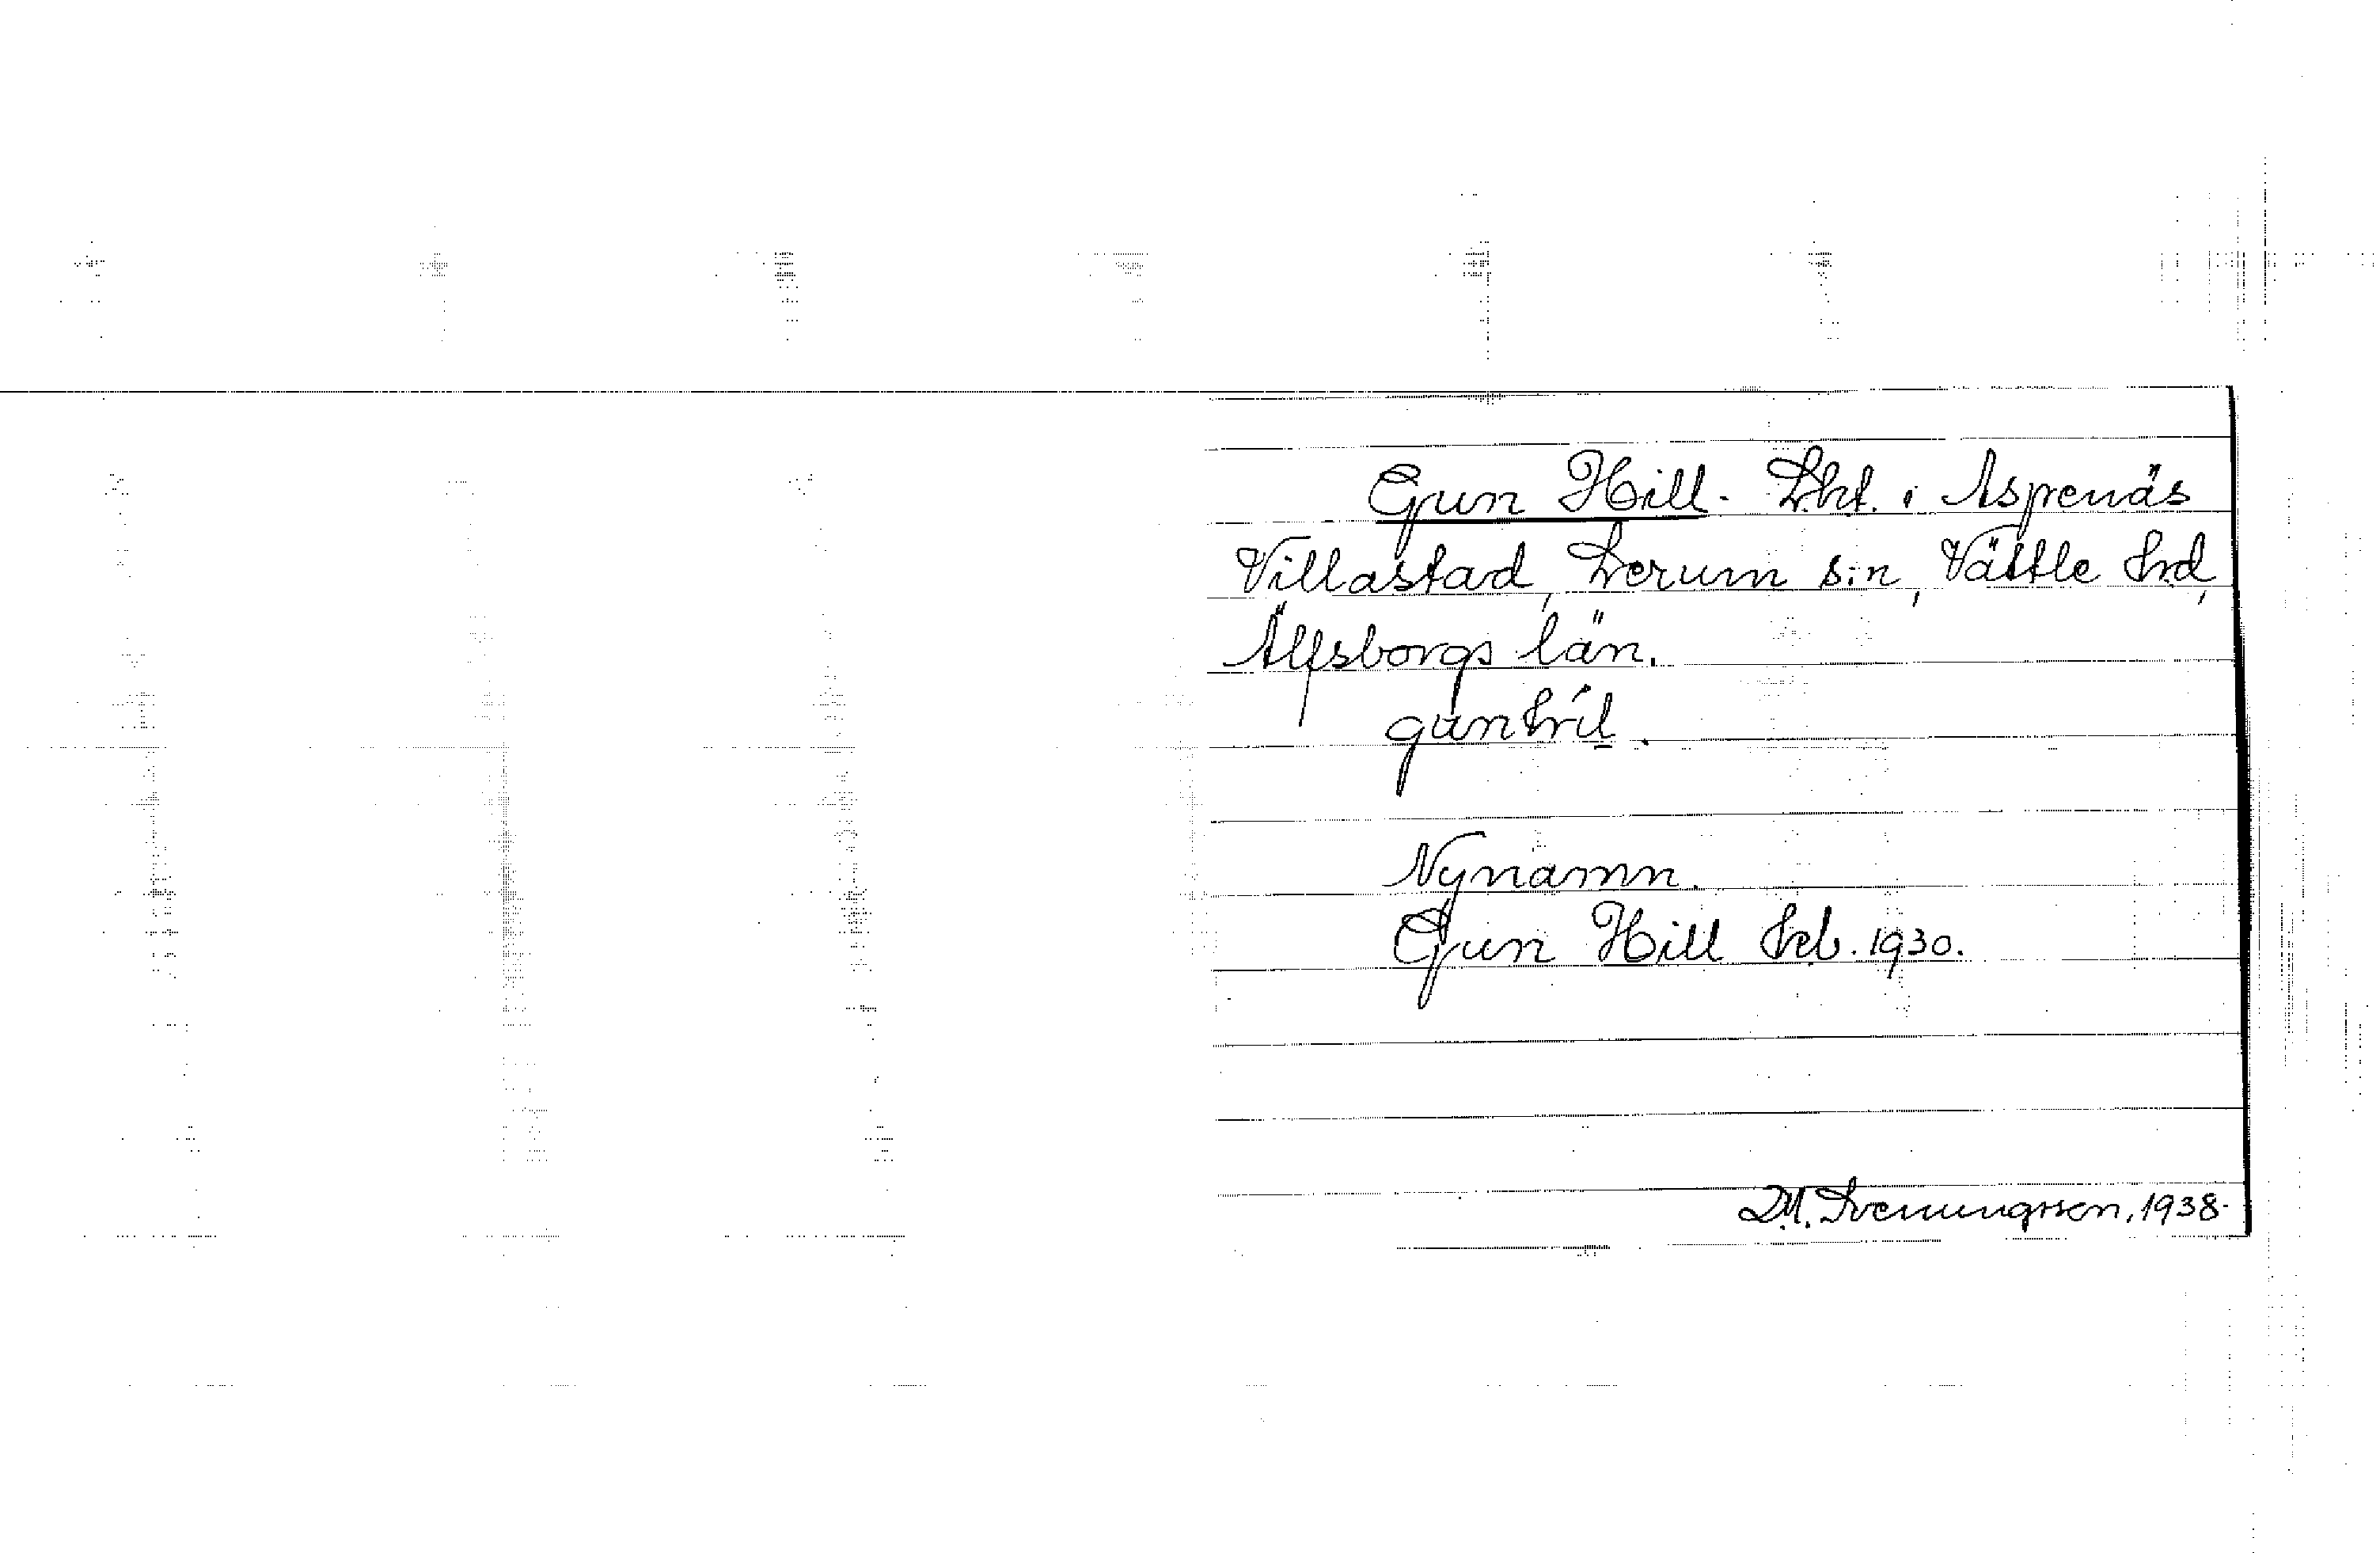 Gun Hill. Lht. i Aspenäs
Villastad, Lerum s:n, Vättle hrd,
Älfsborgs län.
Nynamn.
Gun Hill Jrb. 1930.
D.M. Svenungsson, 1938.